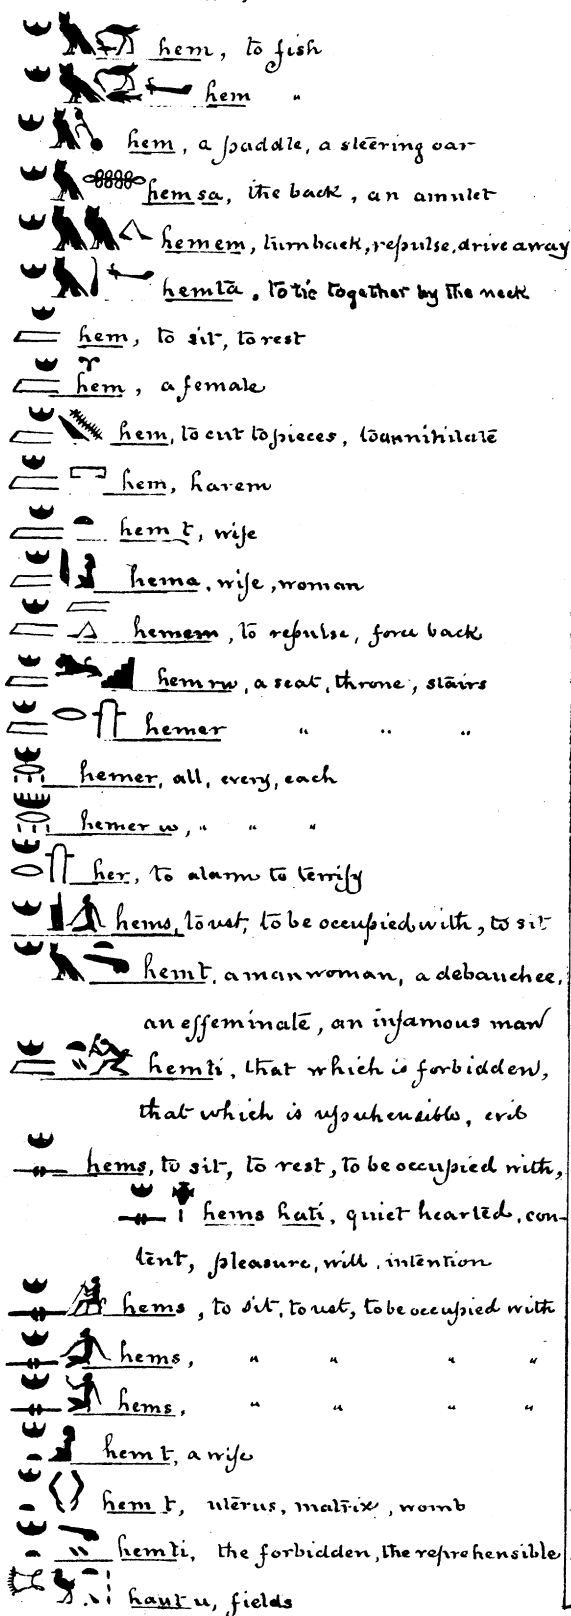 hem, to fish
hem "
hem, a paddle, a steering oar
hem sa, the back, an amulet
hemem, turn back, repulse, drive away
hemtā, to tie together by the neck
hem, to sit, to rest
hem, a female
hem, to cut to pieces, to annihilate
hem, harem
hem t, wife
hema, wife, woman
hemem, to repulse, force back
hem rw, a seat, throne, stairs
hemer " " "
hemer, all, every, each
hemer w, " " "
her, to alarm to terrify
hems, to rest, to be occupied with, to sit
hemt, a man woman, a debauchee,
an effeminate, an infamous man
hemti, that which is forbidden,
that which is reprehensible, evil
hems, to sit, to rest, to be occupied with,
hems hati, quiet hearted, con-
tent, pleasure, will, intention
hems, to sit, to rest, to be occupied with
hems, " " " "
hems, " " " "
hem t, a wife
hem t, uterus, matrix, womb
hemti, the forbidden, the reprehensible
haut u, fields